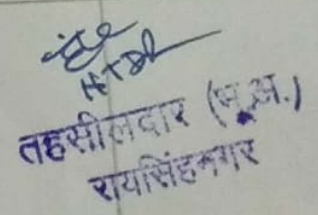 तहसीलदार (भू.अ.)
रायसिंहनगर